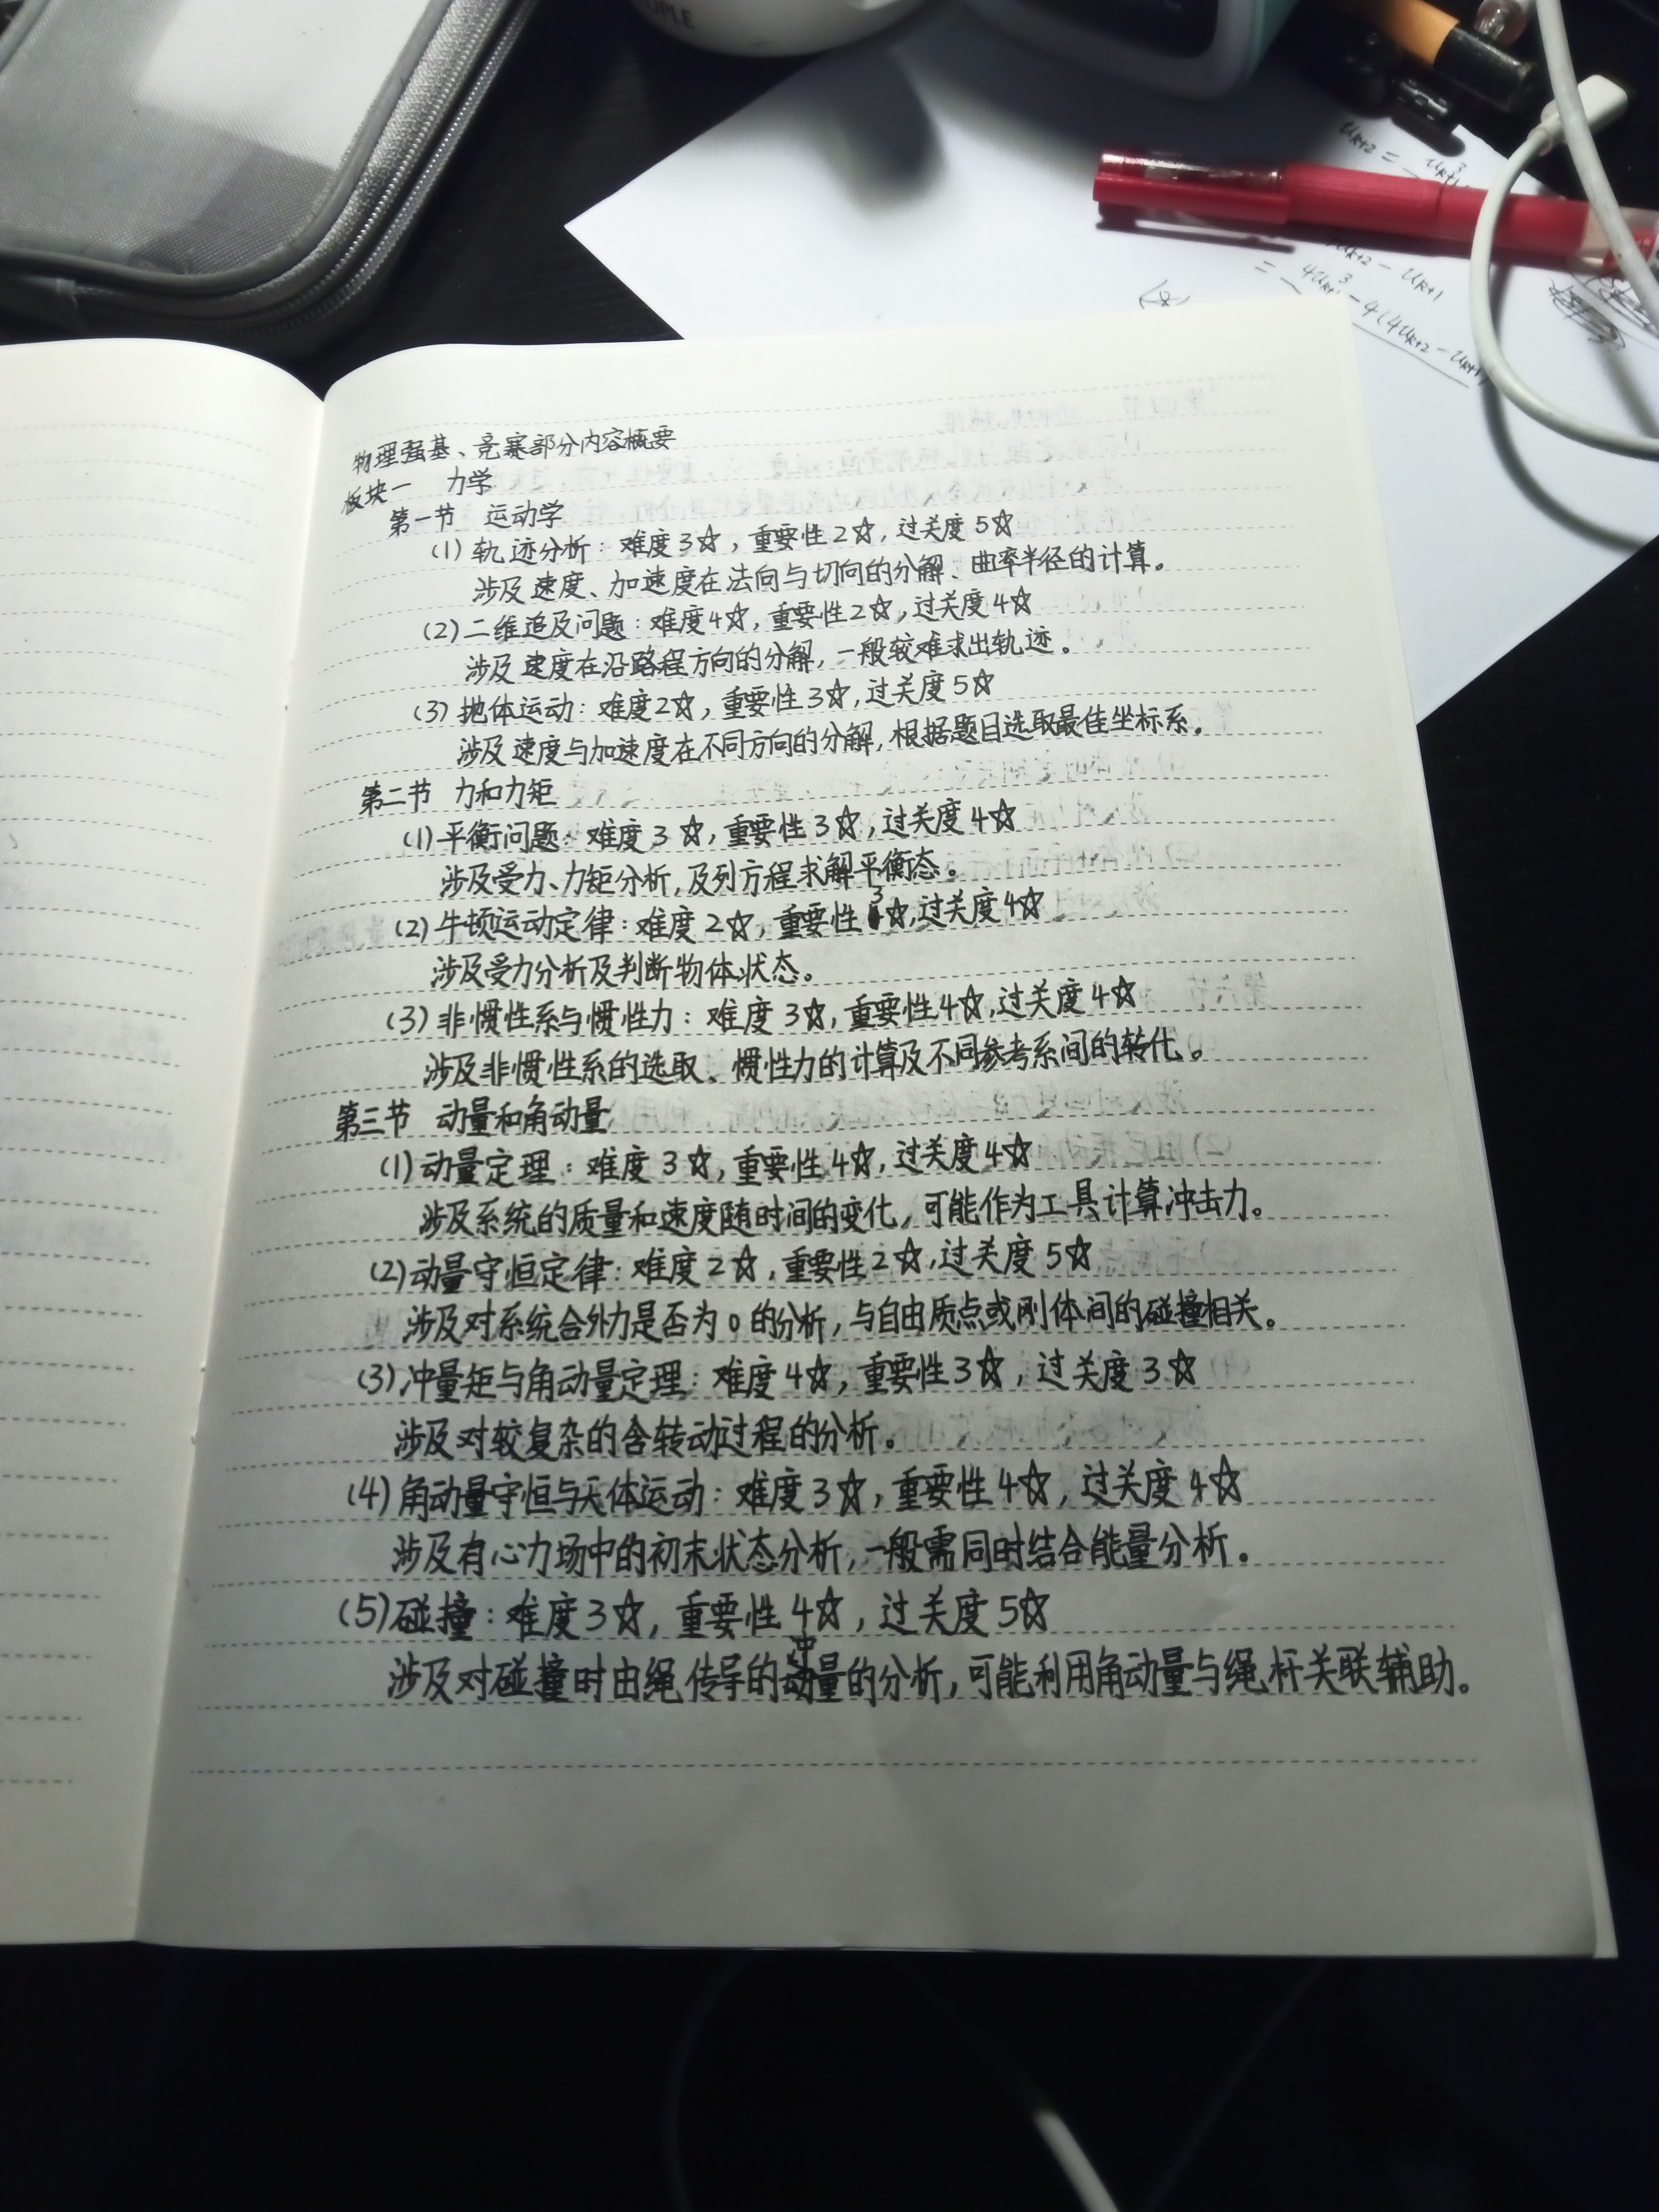 OPLE
u_{k+2} =
u_{k+2} - u_{k+1}
物理强基、竞赛部分内容概要
板块一 力学
第一节 运动学
(1) 轨迹分析: 难度3☆, 重要性2☆, 过关度5☆
涉及速度、加速度在法向与切向的分解、曲率半径的计算。
(2) 二维追及问题: 难度4☆, 重要性2☆, 过关度4☆
涉及速度在沿路程方向的分解, 一般较难求出轨迹。
(3) 抛体运动: 难度2☆, 重要性3☆, 过关度5☆
涉及速度与加速度在不同方向的分解, 根据题目选取最佳坐标系。
第二节 力和力矩
(1) 平衡问题: 难度3☆, 重要性3☆, 过关度4☆
涉及受力、力矩分析, 及列方程求解平衡态。
(2) 牛顿运动定律: 难度2☆, 重要性3☆, 过关度4☆
涉及受力分析及判断物体状态。
(3) 非惯性系与惯性力: 难度3☆, 重要性4☆, 过关度4☆
涉及非惯性系的选取、惯性力的计算及不同参考系间的转化。
第三节 动量和角动量
(1) 动量定理: 难度3☆, 重要性4☆, 过关度4☆
涉及系统的质量和速度随时间的变化, 可能作为工具计算冲击力。
(2) 动量守恒定律: 难度2☆, 重要性2☆, 过关度5☆
涉及对系统合外力是否为0的分析, 与自由质点或刚体间的碰撞相关。
(3) 冲量矩与角动量定理: 难度4☆, 重要性3☆, 过关度3☆
涉及对较复杂的含转动过程的分析。
(4) 角动量守恒与天体运动: 难度3☆, 重要性4☆, 过关度4☆
涉及有心力场中的初末状态分析, 一般需同时结合能量分析。
(5) 碰撞: 难度3☆, 重要性4☆, 过关度5☆
涉及对碰撞时由绳传导的冲量的分析, 可能利用角动量与绳杆关联辅助。